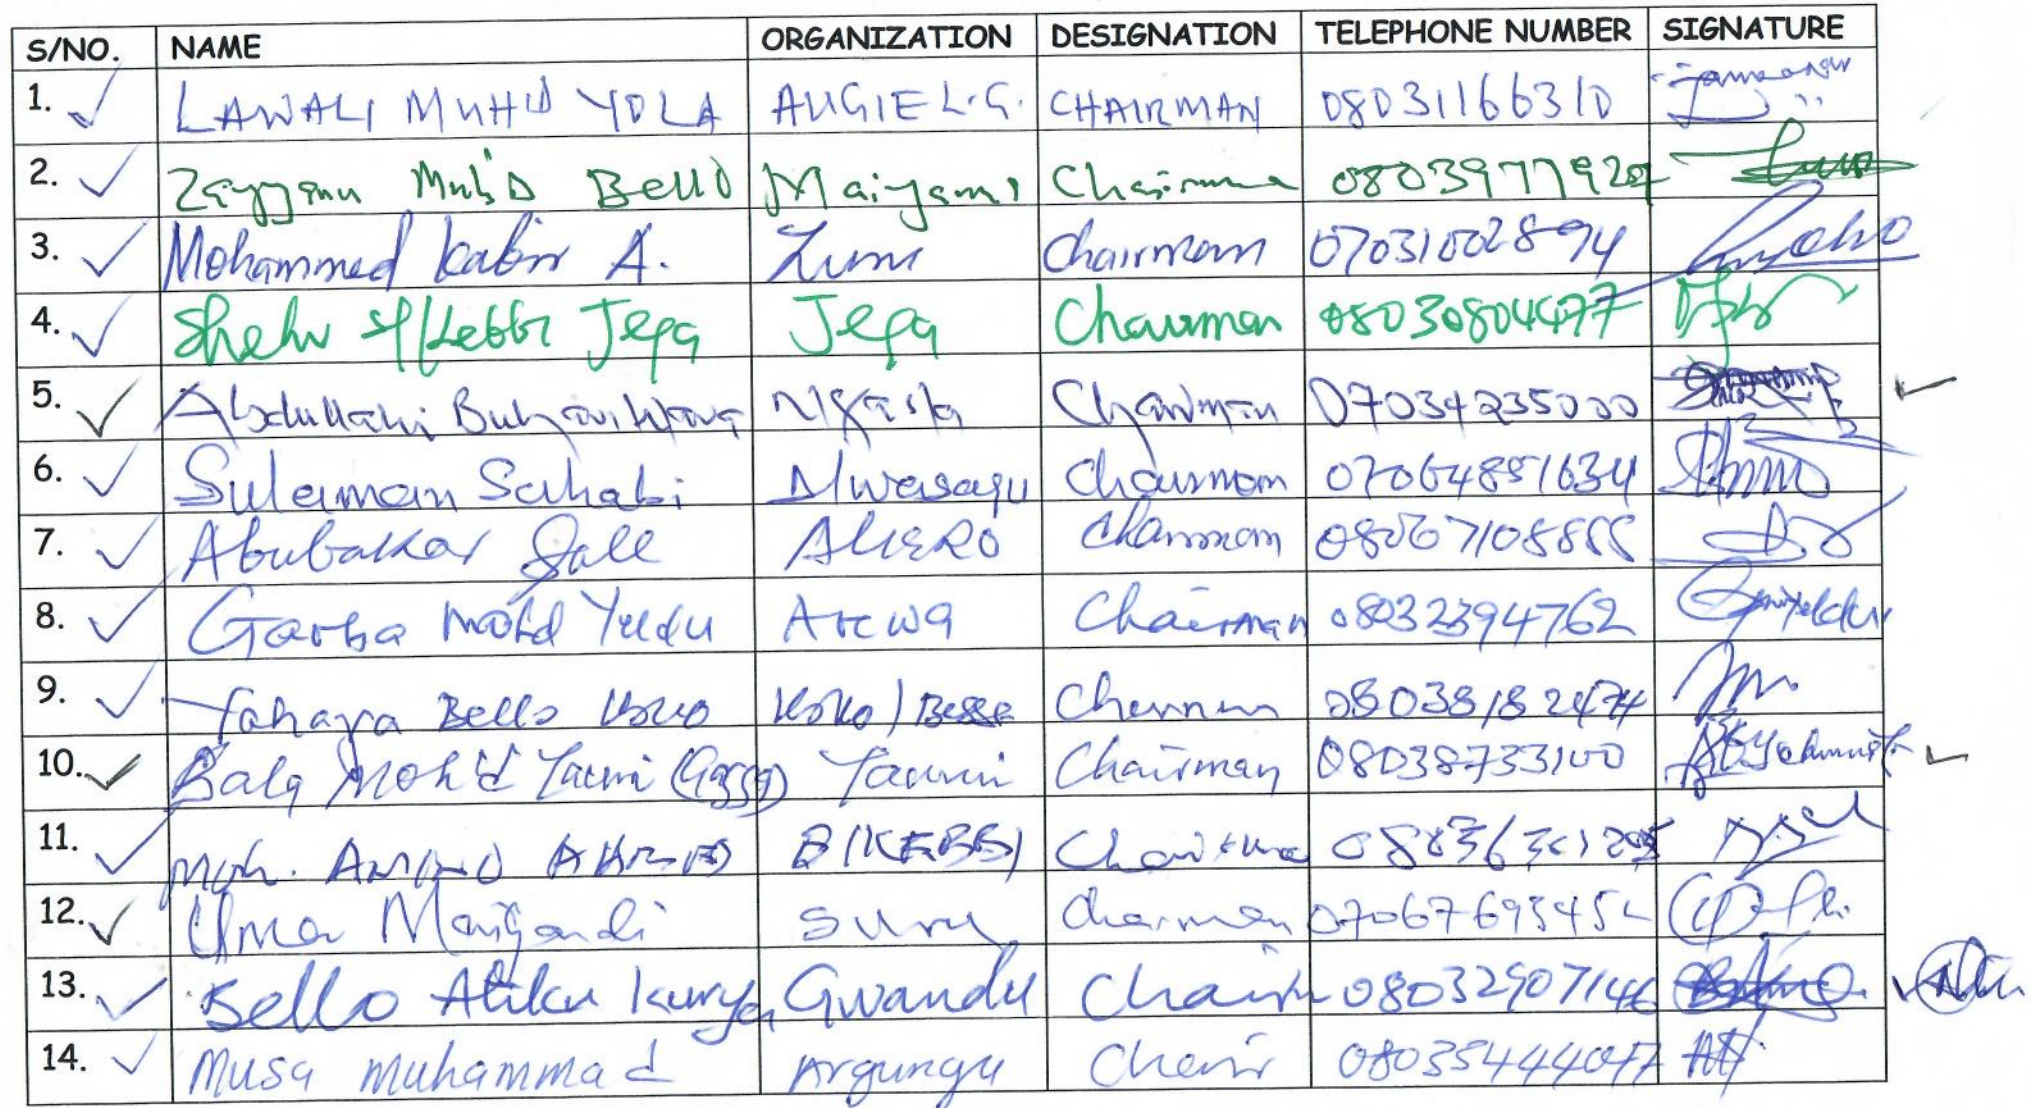 S/NO. NAME ORGANIZATION DESIGNATION TELEPHONE NUMBER SIGNATURE
1. LAWALI MUHD YOLA AUGIE L.G. CHAIRMAN 08031166310
2. Zayyanu Muh'd Bello Maiyama Chairman
3. Mohammed Kabir A. Zuru Chairman 07031002894
4. Shehu Jega Jega Chairman 08030804477
5. Abdullahi Ngaski Chairman 07034235000
6. Suleiman Sahabi Chairman 07064851634
7. Abubakar Sale ALIERO Chairman
8. Garba Mohd Yeldu Arewa Chairman 08032394762
9. Yahaya Bello Koko Koko/Besse Chairman 08038182474
10. Bala Moh'd Yauri Yauri Chairman 08038733100
11. Moh. B/KEBBI
12. Umar Maigandi Suru Chairman
13. Bello Atiku Gwandu 08032907146
14. Musa Muhammad Argungu Chair 08035444077